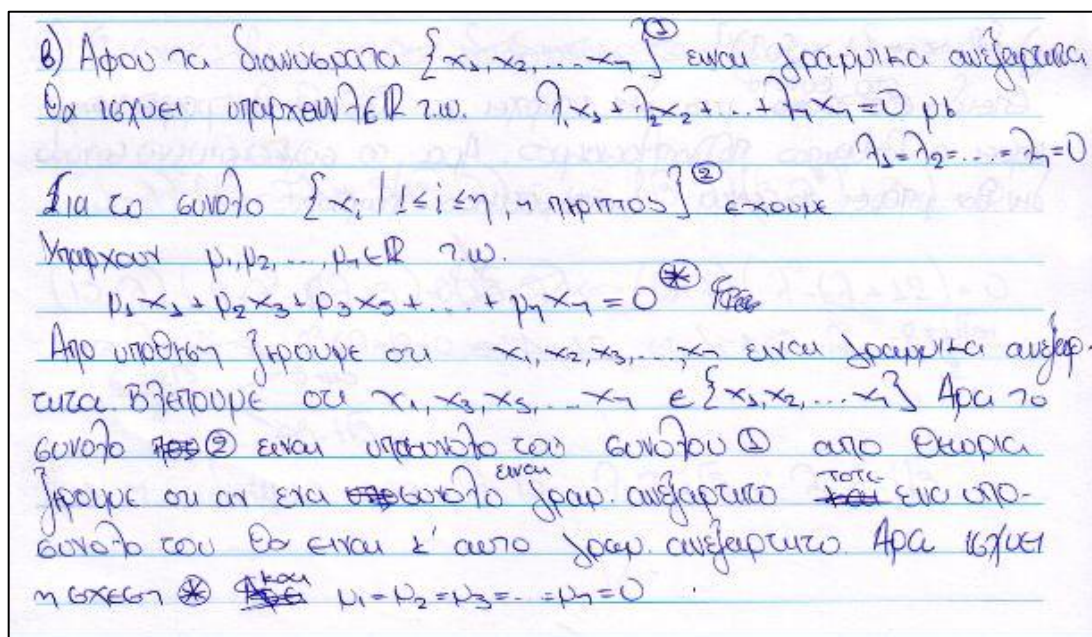 β) Αφου τα διανυσματα {x₁, x₂, ... x₇}① ειναι γραμμικα ανεξαρτητα
Θα ισχυει υπαρχουν λ∈ℝ τ.ω. λ₁x₁+λ₂x₂+...+λ₇x₇=0 με
λ₁=λ₂=...=λ₇=0
Για το συνολο {xᵢ | 1≤i≤η, η περιττος}② εχουμε
Υπαρχουν μ₁,μ₂,...,μ₇∈ℝ τ.ω.
μ₁x₁+μ₂x₃+μ₃x₅+...+μ₇x₇=0 ⊛
Απο υποθεση ξερουμε οτι x₁,x₂,x₃,...x₇ ειναι γραμμικα ανεξαρ-
τητα. Βλεπουμε οτι x₁,x₃,x₅,...x₇ ∈{x₁,x₂,...x₇} Αρα το
συνολο ② ειναι υποσυνολο του συνολου ① απο θεωρια
ξερουμε οτι αν ενα συνολο ειναι γραμ. ανεξαρτητο τοτε ενα υπο-
συνολο του θα ειναι κ' αυτο γραμ. ανεξαρτητο. Αρα ισχυει
η σχεση ⊛ και μ₁=μ₂=μ₃=...=μ₇=0